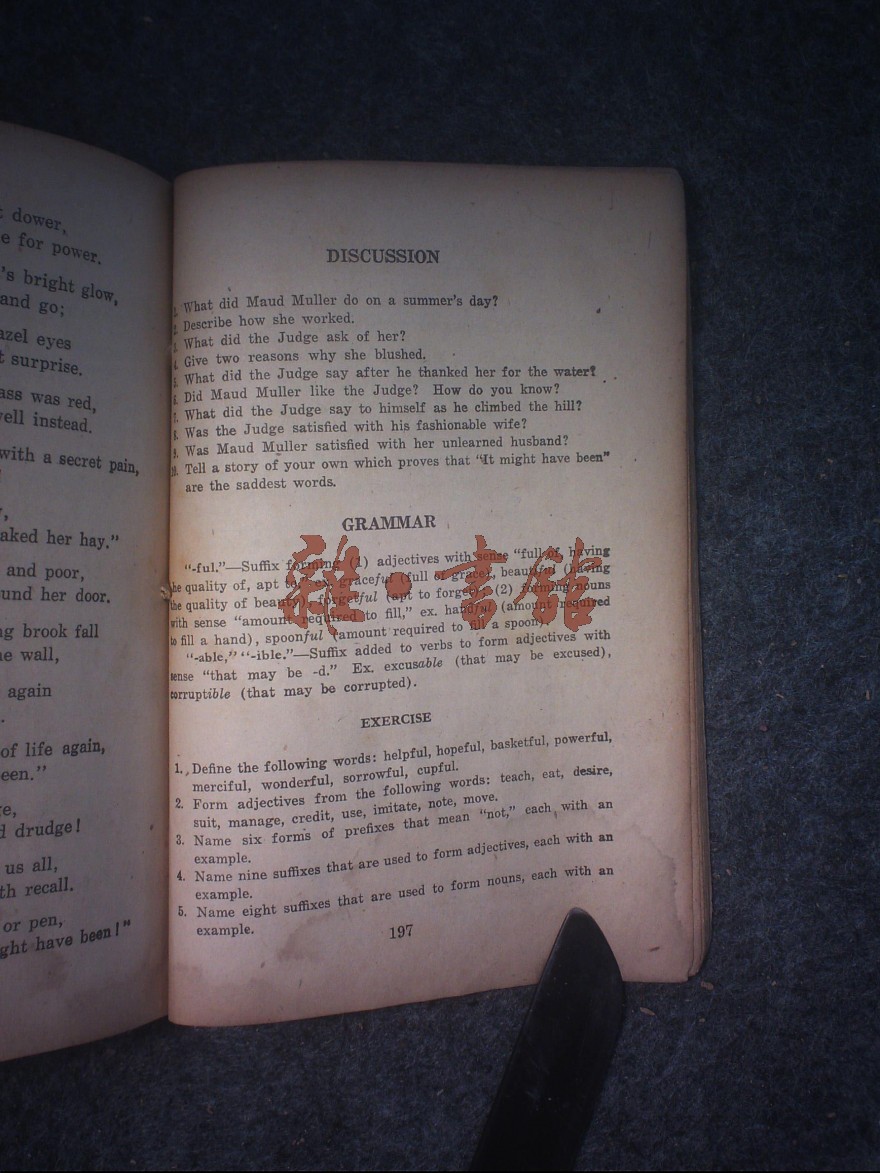 dower,
e for power.
's bright glow,
and go;
azel eyes
t surprise.
ass was red,
well instead.
with a secret pain,
aked her hay."
and poor,
und her door.
ng brook fall
e wall,
again
of life again,
een."
e,
d drudge!
us all,
th recall.
or pen,
ght have been!"
DISCUSSION
1. What did Maud Muller do on a summer's day?
2. Describe how she worked.
3. What did the Judge ask of her?
4. Give two reasons why she blushed.
5. What did the Judge say after he thanked her for the water?
6. Did Maud Muller like the Judge? How do you know?
7. What did the Judge say to himself as he climbed the hill?
8. Was the Judge satisfied with his fashionable wife?
9. Was Maud Muller satisfied with her unlearned husband?
10. Tell a story of your own which proves that "It might have been"
are the saddest words.
GRAMMAR
"-ful."—Suffix forming (1) adjectives with sense "full of, having
the quality of, apt to," ex. graceful (full of grace), beautiful (having
the quality of beauty), forgetful (apt to forget); (2) forming nouns
with sense "amount required to fill," ex. handful (amount required
to fill a hand), spoonful (amount required to fill a spoon).
"-able," "-ible."—Suffix added to verbs to form adjectives with
sense "that may be -d." Ex. excusable (that may be excused),
corruptible (that may be corrupted).
EXERCISE
1. Define the following words: helpful, hopeful, basketful, powerful,
merciful, wonderful, sorrowful, cupful.
2. Form adjectives from the following words: teach, eat, desire,
suit, manage, credit, use, imitate, note, move.
3. Name six forms of prefixes that mean "not," each with an
example.
4. Name nine suffixes that are used to form adjectives, each with an
example.
5. Name eight suffixes that are used to form nouns, each with an
example.
197
雅·書館